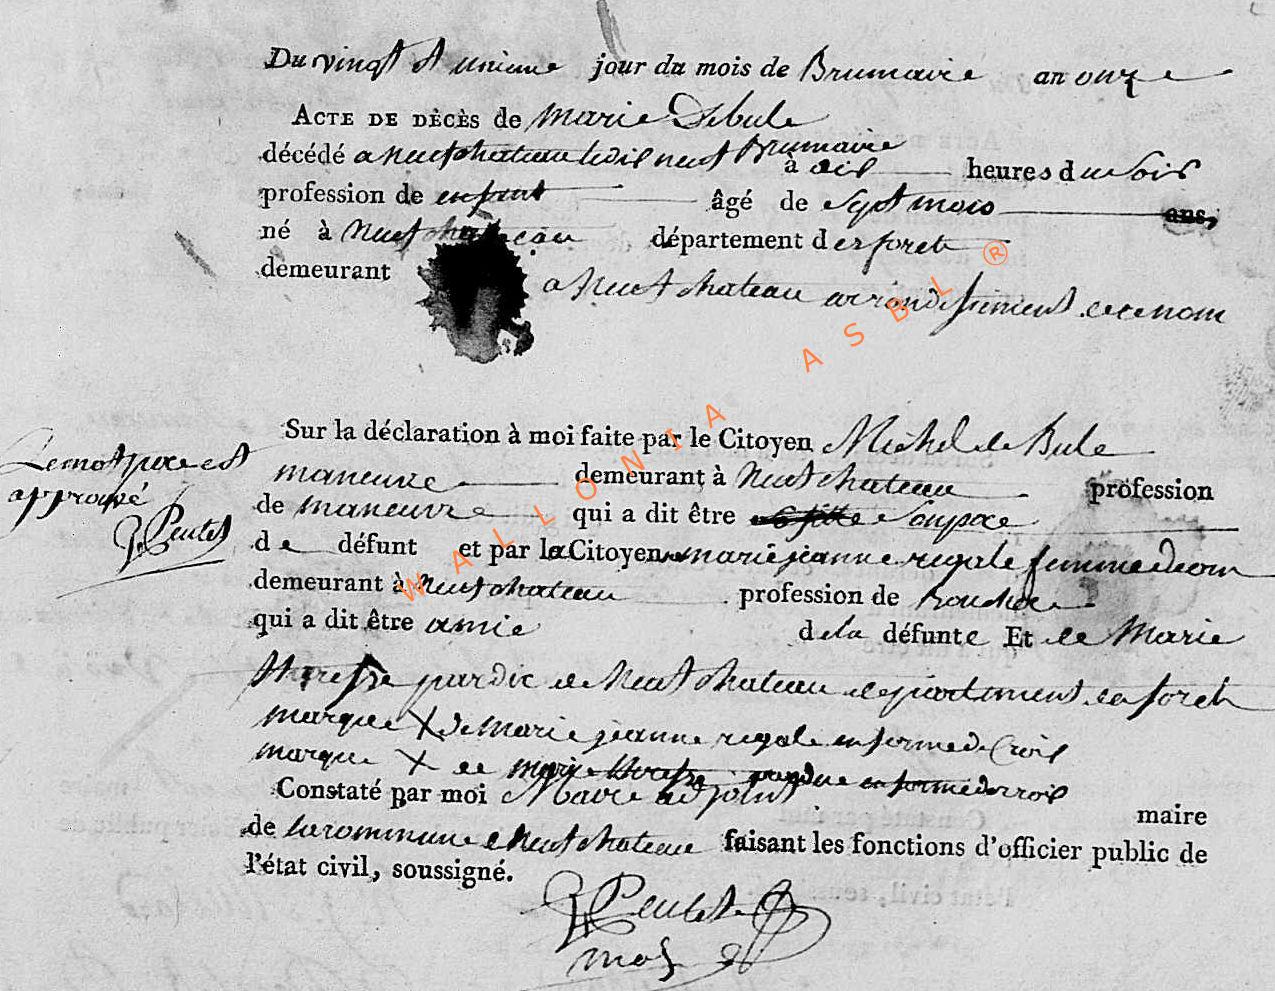 Du vingt et unieme jour du mois de Brumaire an onze
ACTE DE DÉCÈS de Marie Debule
décédé a neufchateau le dis neuf Brumaire à dis heures du Soir
profession de enfant âgé de Sept mois ans,
né à Neufchateau département des foret
demeurant a Neufchateau arrondissement de ce nom
Sur la déclaration à moi faite par le Citoyen Michel de Bule
maneuvre demeurant à Neufchateau profession
de maneuvre qui a dit être Son pere
Le mot pere est
approuvé
de défunt et par la Citoyen marie jeanne regale femme de
demeurant à neufchateau profession de
qui a dit être amie de la défunte Et de Marie
therese de Neufchateau departement des foret
marque X de Marie jeanne regale en forme de Croix
marque X de marie therese en forme de croix
Constaté par moi Maire adjoint maire
de la commune de neufchateau faisant les fonctions d'officier public de
l'état civil, soussigné.
WALLONIA ASBL ®